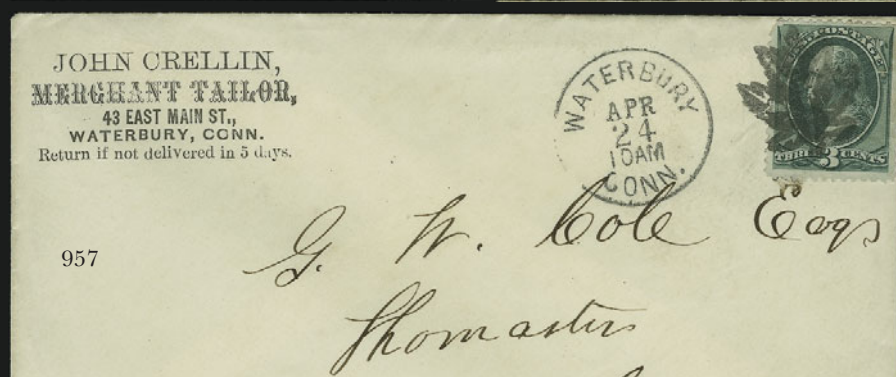 JOHN CRELLIN,
MERCHANT TAILOR,
43 EAST MAIN ST.,
WATERBURY, CONN.
Return if not delivered in 5 days.
WATERBURY
APR
24
10AM
CONN.
U.S. POSTAGE
THREE 3 CENTS
G. W. Cole Esqr
Thomaston
957